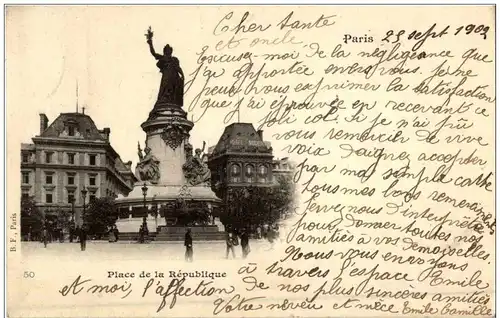 Cher tante
et oncle.
Paris 25 sept 1902
Excusez-moi de la négligeance que
j'ai apportée envers vous. Je ne
peux vous exprimer la satisfaction
que j'ai éprouvée en recevant ce
joli col. Si je n'ai pu
vous remercier de vive
voix daignez accepter
par ma simple carte
tous mes bons
servez nous d'interprète
pour donner toutes nos
amitiés à vos demoiselles.
Nous vous envoyons
à travers l'espace Emile
et moi, l'affection de nos plus sincères amitiés
Votre neveu et nièce Emile Camille
B. F., Paris
50
Place de la République